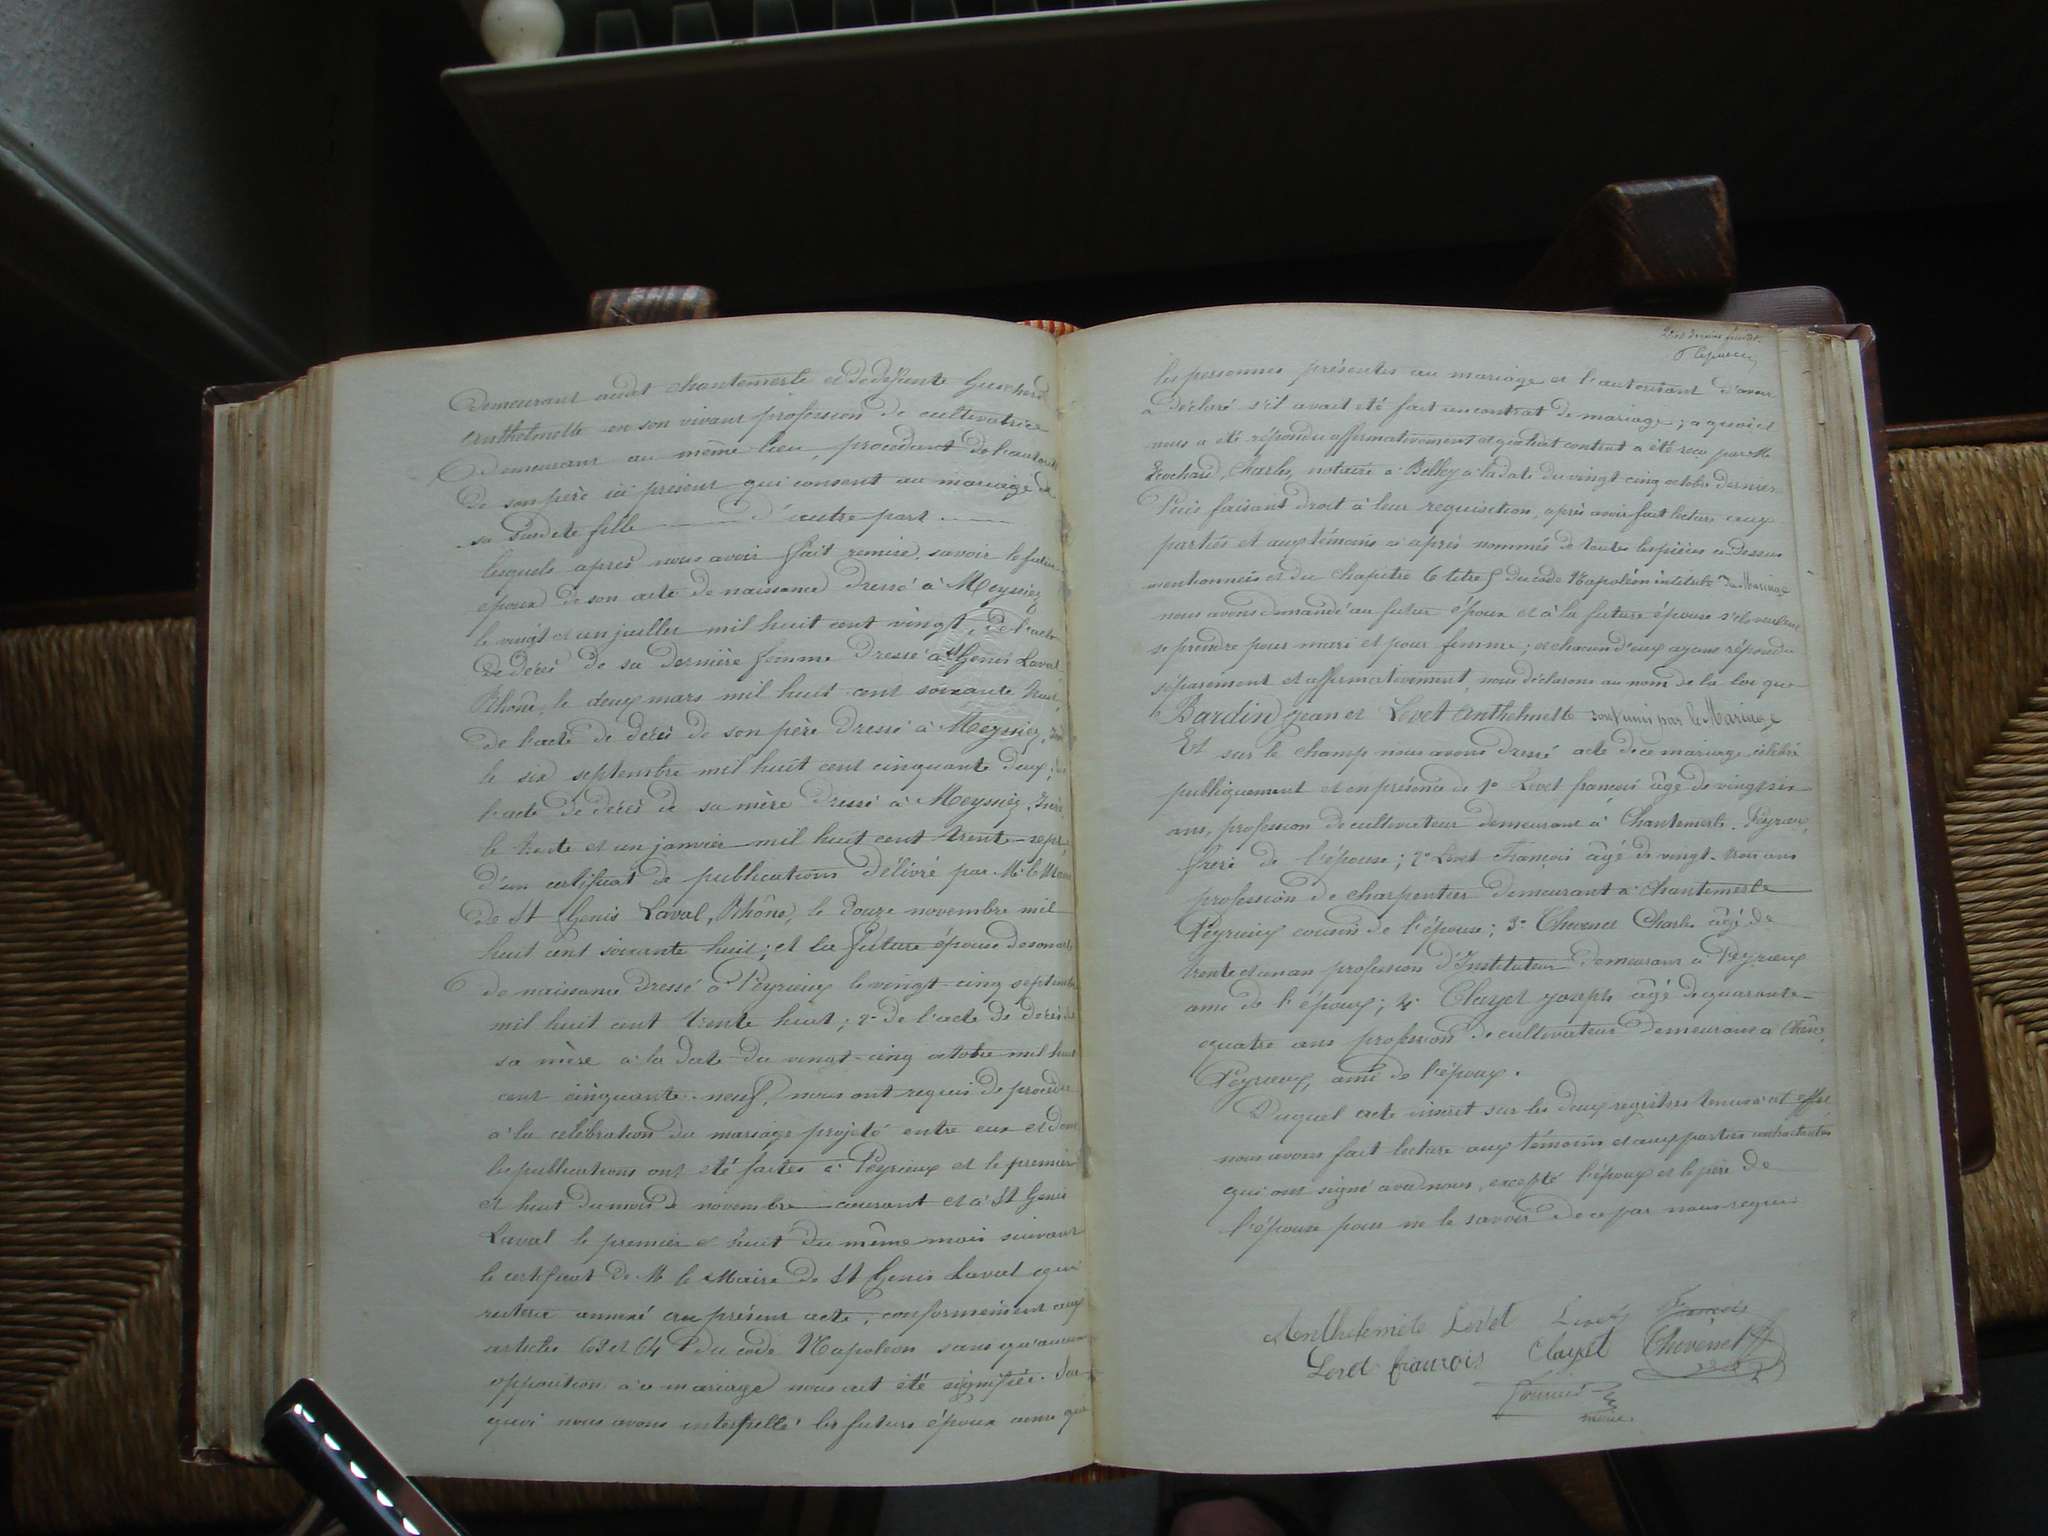 Demeurant audit chantemerle et de défunte Guichard
Anthelmette en son vivant profession de cultivatrice
Demeurant au même lieu, procédant de l'autorité
de son père ici présent qui consent au mariage de
sa susdite fille ——— d'autre part ———
lesquels après nous avoir fait remise savoir le futur
époux de son acte de naissance dressé à Meyssiez
le vingt et un juillet mil huit cent vingt, de l'acte
de décès de sa dernière femme dressé à St Genis Laval
Rhône, le deux mars mil huit cent soixante huit,
de l'acte de décès de son père dressé à Meyssiez, Isère
le six septembre mil huit cent cinquante deux; de
l'acte de décès de sa mère dressé à Meyssiez, Isère
le trente et un janvier mil huit cent trente-sept,
d'un certificat de publications délivré par M. le Maire
de St Genis Laval, Rhône, le douze novembre mil
huit cent soixante huit; et la future épouse de son acte
de naissance dressé à Peyrieux le vingt-cinq septembre
mil huit cent trente huit; 2° de l'acte de décès de
sa mère à la date du vingt-cinq octobre mil huit
cent cinquante-neuf, nous ont requis de procéder
à la célébration du mariage projeté entre eux et dont
les publications ont été faites à Peyrieux et le premier
et huit du mois de novembre courant et à St Genis
Laval le premier et huit du même mois suivant
le certificat de M le Maire de St Genis Laval qui
restera annexé au présent acte, conformément aux
articles 63 et 64 du code Napoléon sans qu'aucune
opposition à ce mariage nous ait été signifiée. Sur
quoi nous avons interpellé les futurs époux ainsi que
les personnes présentes au mariage et l'autorisant d'avoir
à déclaré s'il avait été fait un contrat de mariage; à quoi il
nous a été répondu affirmativement et qu'edit contrat a été reçu par Me
Charles, notaire à Belley à la date du vingt cinq octobre dernier
Puis faisant droit à leur requisition, après avoir fait lecture aux
parties et aux témoins ci après nommés de toutes les pièces ci dessus
mentionnées et du chapitre 6 titre 5 du code Napoléon intitulé du Mariage
nous avons demandé au futur époux et à la future épouse s'ils veulent
se prendre pour mari et pour femme; et chacun d'eux ayant répondu
séparément et affirmativement, nous déclarons au nom de la loi que
Bardin jean et Levet Anthelmette sont unis par le Mariage
Et sur le champ nous avons dressé acte de ce mariage célébré
publiquement et en présence de 1° Levet françois âgé de vingt six
ans, profession de cultivateur demeurant à Chantemerle, Peyrieux,
frère de l'épouse; 2° Levet François âgé de vingt-trois ans
profession de charpentier demeurant à Chantemerle
Peyrieux cousin de l'épouse; 3° Thevenet Charles âgé de
trente et un an profession d'Instituteur demeurant à Peyrieux
ami de l'époux; 4° Clayet joseph âgé de quarante-
quatre ans profession de cultivateur demeurant à
Peyrieux, ami de l'époux.
Duquel acte inscrit sur les deux registres tenus à cet effet
nous avons fait lecture aux témoins et aux parties contractantes
qui ont signé avec nous, excepté l'époux et le père de
l'épouse pour ne le savoir de ce par nous requis
Anthelmète Levet Levet François
Levet françois Clayet Thevenet
maire.